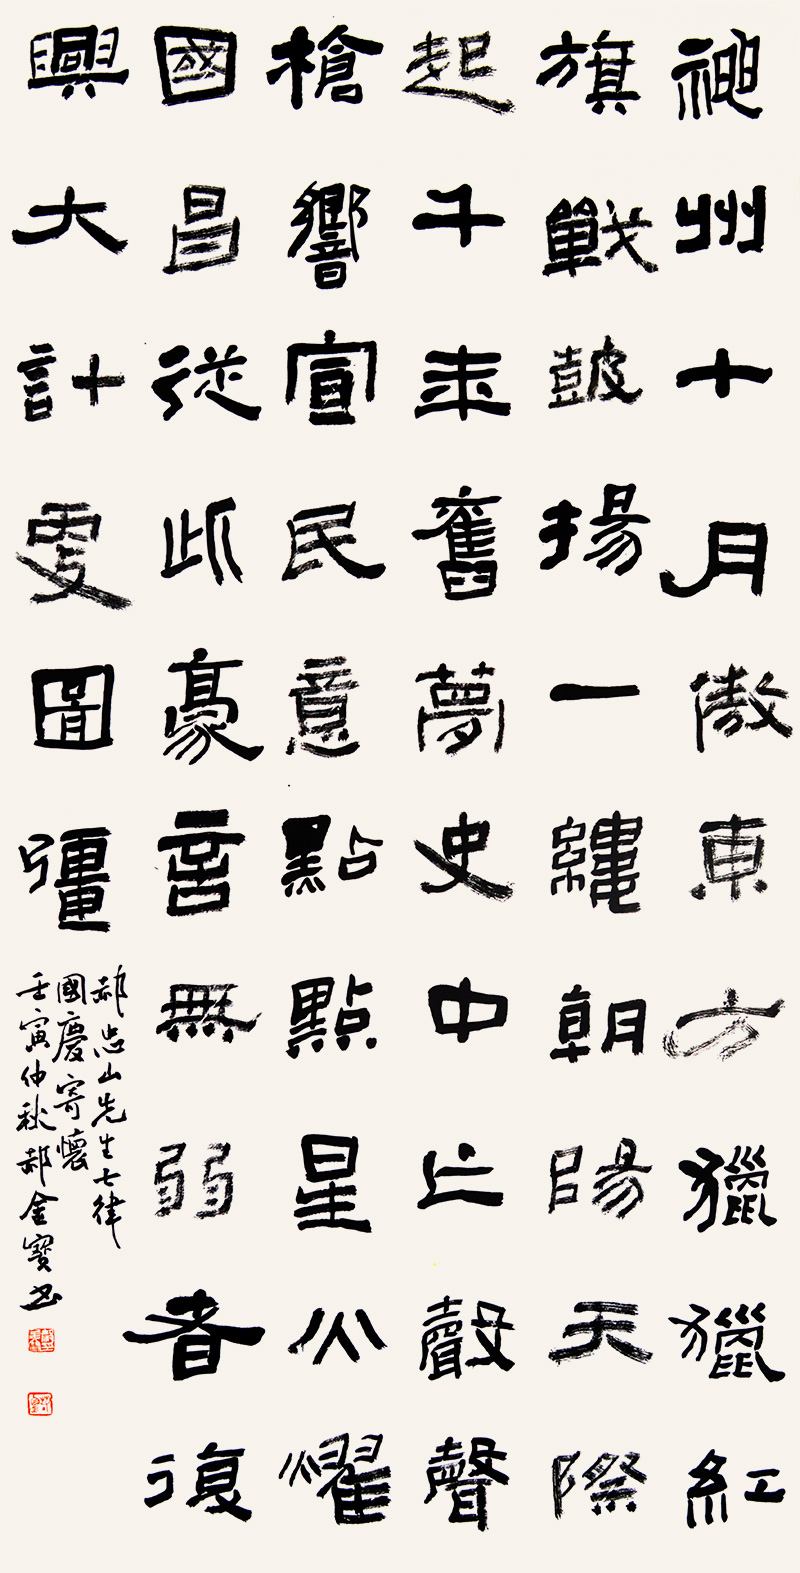 神州十月傲東方獵獵紅
旗戰鼓揚一縷朝陽天際
起千年舊夢史中亡聲聲
槍響宣民意點點星火耀
國昌從此豪言無弱者復
興大計更圖彊
郝山先生七律
國慶寄懷
壬寅仲秋郝金寶书